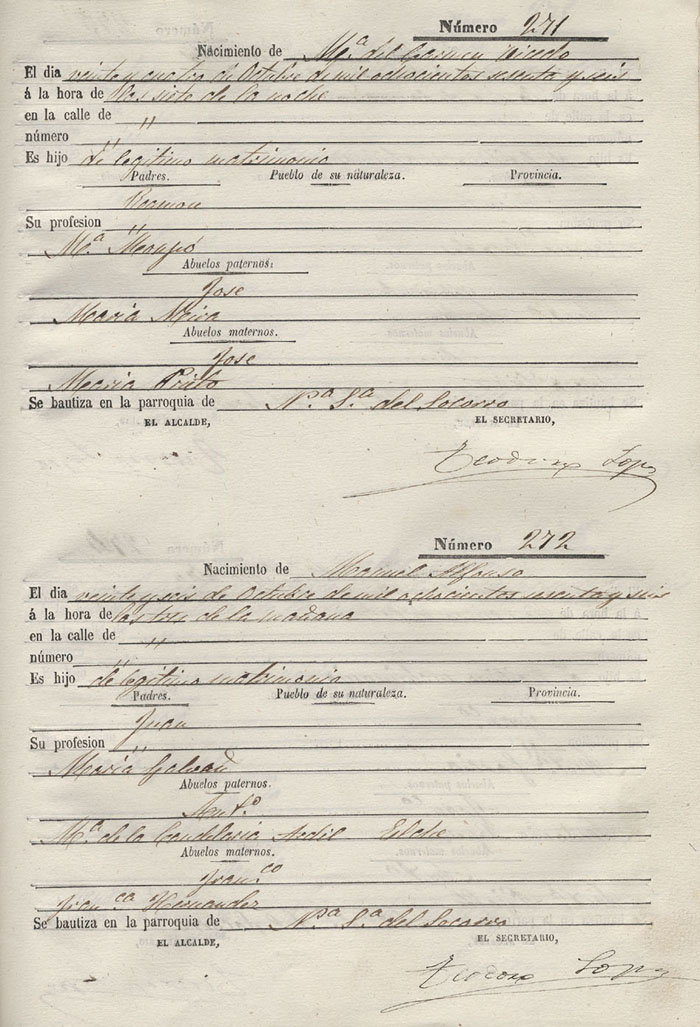 Número 271
Nacimiento de M.ª del Carmen
El dia veinte y cuatro de Octubre de mil ochocientos sesenta y seis
á la hora de las siete de la noche
en la calle de "
número "
Es hijo de legitimo matrimonio
Padres. Pueblo de su naturaleza. Provincia.
Ramon
Su profesion "
M.ª
Abuelos paternos:
Jose
Maria
Abuelos maternos.
Jose
Maria
Se bautiza en la parroquia de N.ª S.ª del Socorro
EL ALCALDE, EL SECRETARIO,
Teodoro Lopez
Número 272
Nacimiento de Manuel Alfonso
El dia veinte y seis de Octubre de mil ochocientos sesenta y seis
á la hora de las tres de la mañana
en la calle de "
número "
Es hijo de legitimo matrimonio
Padres. Pueblo de su naturaleza. Provincia.
Juan
Su profesion "
Maria Galvan
Abuelos paternos.
Ant.º
M.ª de la Candelaria
Abuelos maternos.
Fran.co
Fran.ca Hernandez
Se bautiza en la parroquia de N.ª S.ª del Socorro
EL ALCALDE, EL SECRETARIO,
Teodoro Lopez